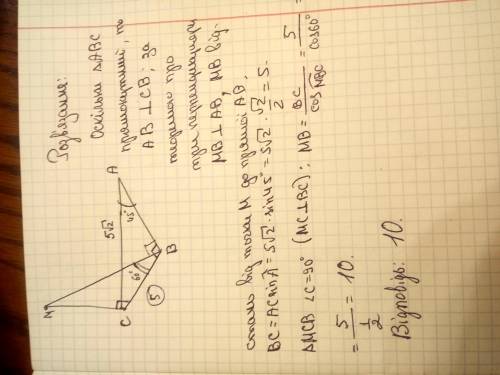 Розв'язання:
Оскільки △ABC
прямокутний, то
AB ⊥ CB; за
теоремою про
три перпендикуляри
MB ⊥ AB, MB від-
стань від точки M до прямої AB.
BC = AC sin A = 5√2 · sin 45° = 5√2 · √2/2 = 5.
△MCB ∠C = 90° (MC ⊥ BC); MB = BC/cos MBC = 5/cos 60° =
= 5/(1/2) = 10.
Відповідь: 10.
M
C
A
B
5√2
45°
60°
5